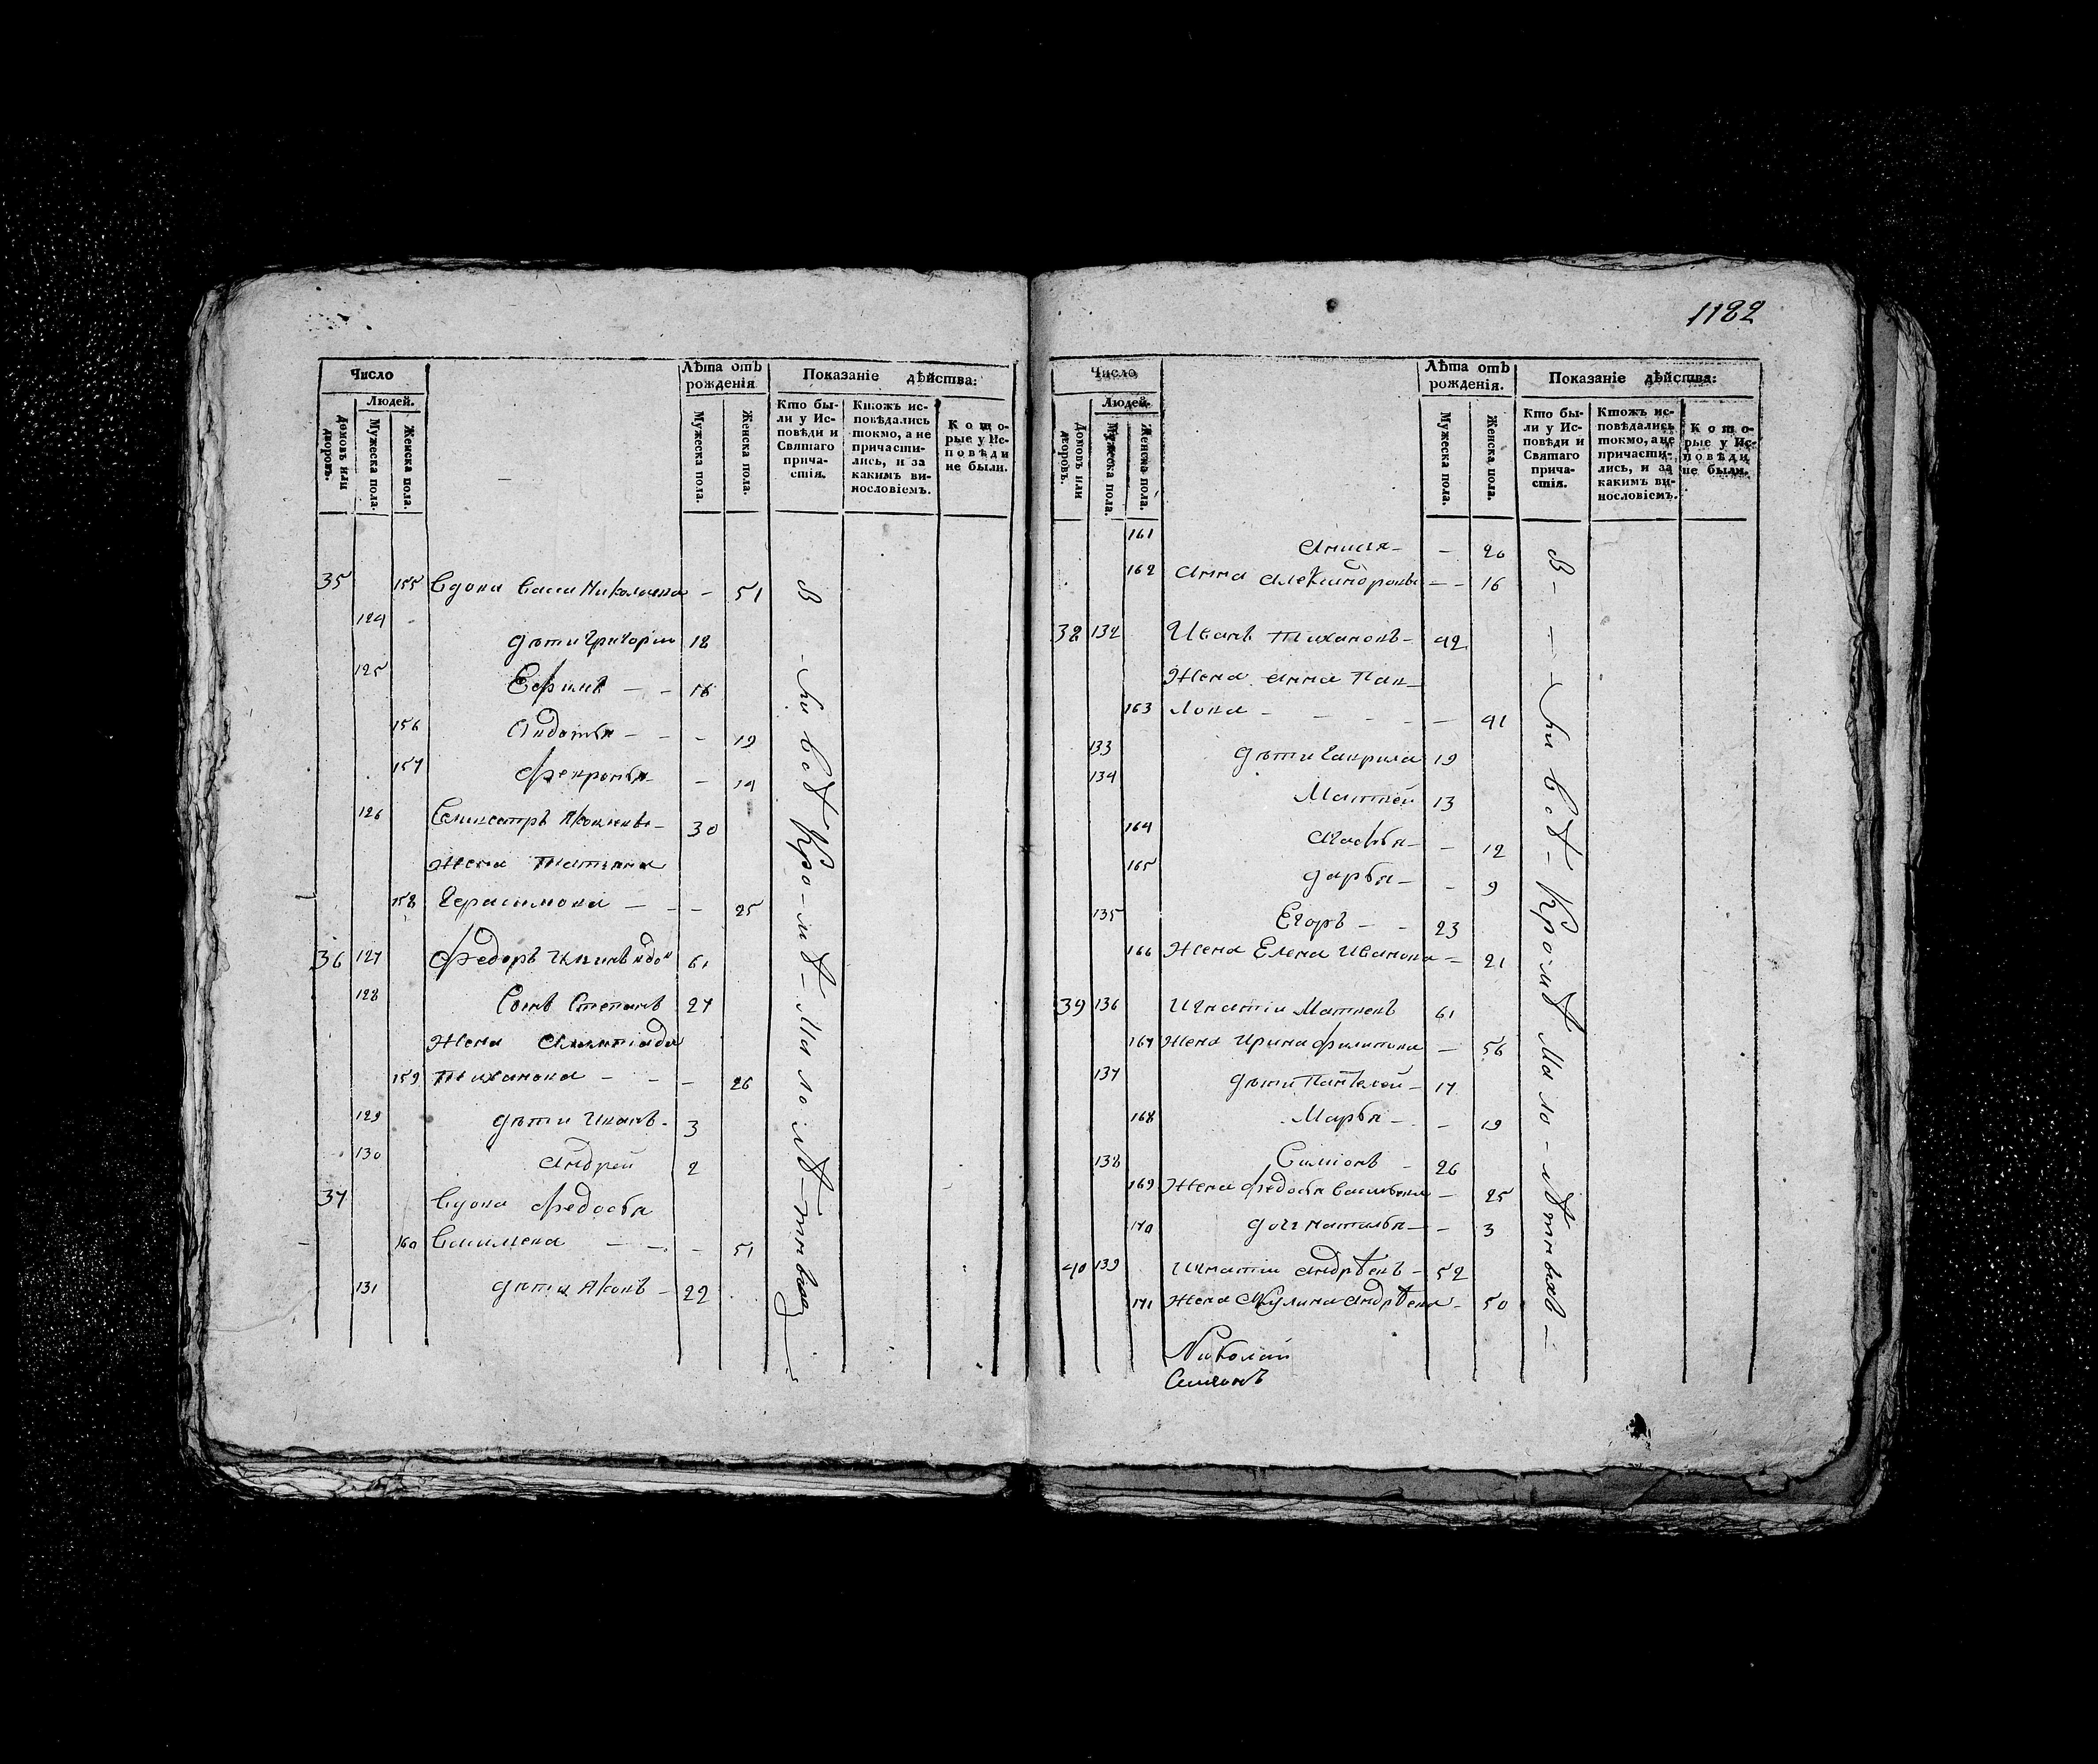 1182
Число
Людей.
Домовъ или дворовъ.
Мужеска пола.
Женска пола.
Лѣта отъ рожденія
Мужеска пола.
Женска пола.
Показаніе дѣйства:
Кто бы-
ли у Ис-
повѣди и
Святаго
прича-
стія.
Ктожъ ис-
повѣдались
токмо, а не
причасти-
лись, и за
какимъ ви-
нословіемъ.
Кото-
рые у Ис-
повѣди
не были.
35 155 Вдова Николаева - 51
124 дѣти Григории 18
125 Ефимъ - - 16
156 Авдотья - - - 19
157 Февронья - - 14
126 Селивестръ Яковлевъ - 30
жена Татьяна
158 Герасимова - - - 25
36 127 Федоръ вдов 61
128 Сынъ Степанъ 27
жена Олимпіада
159 Тиханова - - - 26
129 дѣти Иванъ - 3
130 Андрей 2
37 Вдова Федосья
160 - - - 51
131 дѣти Яковъ - 22
В - си всѣ Кро-мѣ - Мало-лѣ-тнвхъ
Число
Людей.
Домовъ или дворовъ.
Мужеска пола.
Женска пола.
Лѣта отъ рожденія.
Мужеска пола.
Женска пола.
Показаніе дѣйства:
Кто бы-
ли у Ис-
повѣди и
Святаго
прича-
стія.
Ктожъ ис-
повѣдались
токмо, а не
причасти-
лись, и за
какимъ ви-
нословіемъ.
Кото-
рые у Ис-
повѣди
не были.
161 Анисья - - 20
162 Анна Александрова - - 16
38 132 Иванъ Тихановъ - 42
Жена Анна Пав-
163 лова - - - - - 41
133 дѣти Гаврила 19
134 Матвей 13
164 Агафья - - 12
165 дарья - - 9
135 Егоръ - - 23
166 Жена Елена Иванова - 21
39 136 Игнатіи Матвевъ 61
167 Жена Ирина Филипова - 56
137 дѣти Пантелей - 17
168 Марья - - 19
138 Симіонъ - 26
169 Жена Федосья Васильева - 25
170 дочь Наталья - - 3
40 139 Игнатіи Андрѣевъ - 52
171 Жена Акулина Андрѣева - 50
В - - - си всѣ - Кро-мѣ Мало-лѣтнвхъ -
Николай
Симіонъ